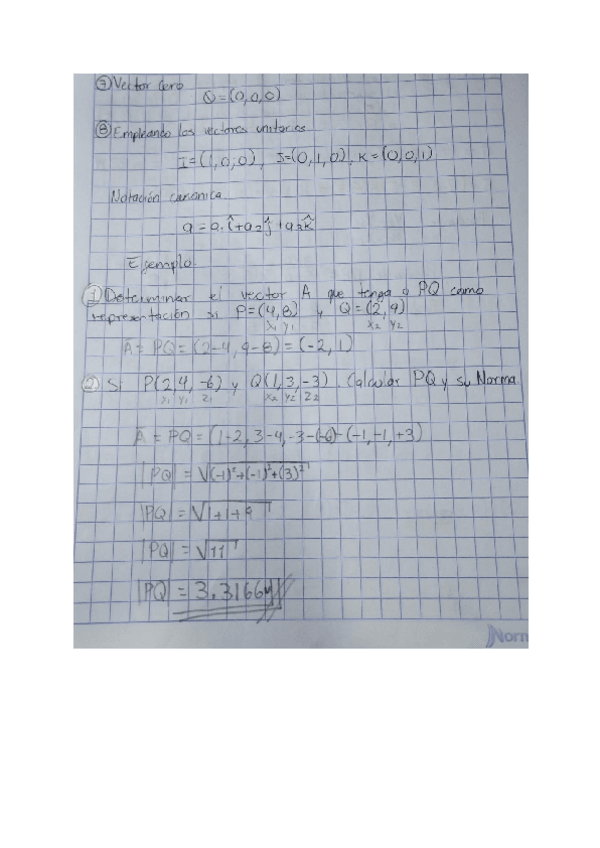 ⑨ Vector Cero
O=(0,0,0)
⑧ Empleando los vectores unitarios
I=(1,0,0), J=(0,1,0), K=(0,0,1)
Notación canonica
a=a.î+a₂ĵ+a₃k̂
Ejemplo.
① Determinar el vector A que tenga a PQ como
representación si P=(4,8) y Q=(2,9)
x₁ y₁ x₂ y₂
A= PQ=(2-4, 9-8)=(-2,1)
② Si P(2,4,-6) y Q(1,3,-3). Calcular PQ y su Norma
x₁ y₁ z₁ x₂ y₂ z₂
A = PQ=(1-2, 3-4,-3-(-6)-(-1,-1,+3)
|PQ| = √(-1)²+(-1)²+(3)²
|PQ| = √1+1+9
|PQ| = √11
|PQ| = 3.3166
Norm